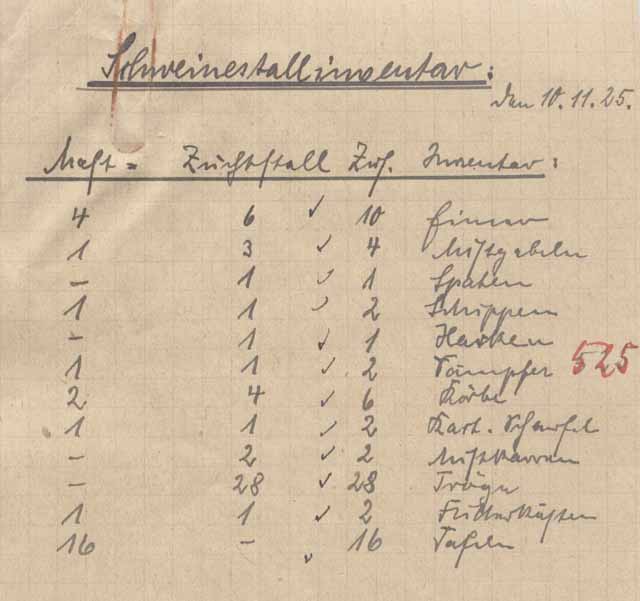 Schweinestallinventar:
den 10.11.25.
Mast= Zuchtstall Zus. Inventar:
4 6 ✓ 10 Eimer
1 3 ✓ 4 Mistgabeln
– 1 ✓ 1 Spaten
1 1 ✓ 2 Schippen
– 1 ✓ 1 Harken
1 1 ✓ 2 Dämpfer 525
2 4 ✓ 6 Körbe
1 1 ✓ 2 Kart. Schaufel
– 2 ✓ 2 Mistkarren
– 28 ✓ 28 Tröge
1 1 ✓ 2 Futterkästen
16 – ✓ 16 Tafeln